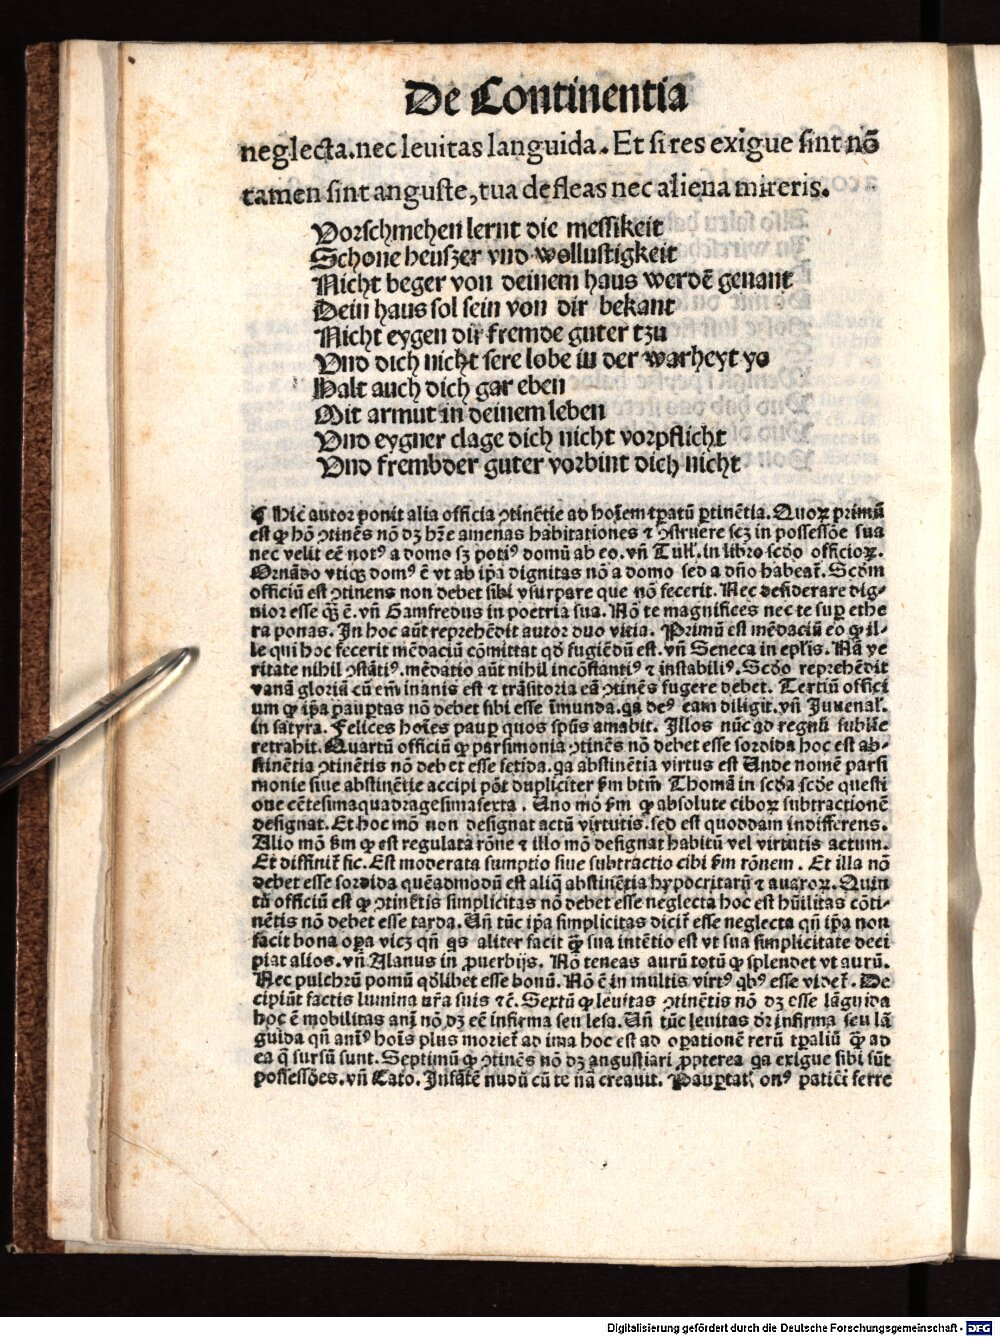 De Continentia
neglecta.nec leuitas languida. Et si res exigue sint nõ
tamen sint anguste, tua defleas nec aliena mireris.
Vorschmehen lernt die messikeit
Schone heuszer vnd wollustigkeit
Nicht beger von deinem haus werdē genant
Dein haus sol sein von dir bekant
Nicht eygen dir fremde guter tzu
Vnd dich nicht sere lobe in der warheyt yo
Halt auch dich gar eben
Mit armut in deinem leben
Vnd eygner clage dich nicht vorpflicht
Vnd frembder guter vorbint dich nicht
¶ Hic autor ponit alia officia ꝯtinētie ad hoīem tꝑatū ꝑtinētia. Quoꝝ primū
est ꝙ hō ꝯtinēs nō dꝫ hr̄e amenas habitationes ⁊ ꝯstruere scꝫ in possessōe sua
nec velit eē notꝰ a domo sꝫ potiꝰ domū ab eo. vñ Tull'. in libro scd̄o officioꝝ.
Ornādo vtiqꝫ domꝰ ē vt ab ip̄a dignitas nō a domo sed a dño habeat̄. Scd̄m
officiū est ꝯtinens non debet sibi vsurpare que nō fecerit. Nec desiderare dig-
nior esse qꝫ̄ ē. vñ Gamfredus in poetria sua. Nō te magnifices nec te suꝑ ethe
ra ponas. In hoc aūt reprehēdit autor duo vicia. Primū est mēdaciū eo ꝙ il-
le qui hoc fecerit mēdaciū cōmittat qd̄ fugiēdū est. vñ Seneca in epl̄is. Nā ve
ritate nihil ꝯstātiꝰ. mēdatio aūt nihil incōstantiꝰ ⁊ instabiliꝰ. Scd̄o reprehēdit
vanā gloriā cū em̄ inanis est ⁊ trāsitoria eā ꝯtinēs fugere debet. Tertiū offici
um ꝙ ip̄a pauꝑtas nō debet sibi esse īmunda. qa deꝰ eam diligit. vñ Juuenal'.
in satyra. Felices hoīes pauꝑ quos sp̄us amabit. Illos nūc ad regnū sublīe
retrahit. Quartū officiū ꝙ parsimonia ꝯtinēs nō debet esse sordida hoc est ab-
stinētia ꝯtinētis nō debet esse fetida. qa abstinētia virtus est Unde nomē parsi
monie siue abstinētie accipi pōt dupliciter s̄m btm̄ Thomā in scd̄a scd̄e questi
one cētesimaquadragesimasexta. Uno mō s̄m ꝙ absolute ciboꝝ subtractionē
designat. Et hoc mō non designat actū virtutis. sed est quoddam indifferens.
Alio mō s̄m ꝙ est regulata rōne ⁊ illo mō designat habitū vel virtutis actum.
Et diffinit̄ sic. Est moderata sumptio siue subtractio cibi s̄m rōnem. Et illa nō
debet esse sordida quēadmodū est aliq̄ abstinētia hypocritarū ⁊ auaroꝝ. Quin
tū officiū est ꝙ ꝯtinētis simplicitas nō debet esse neglecta hoc est hūilitas cōti-
nētis nō debet esse tarda. Uñ tūc ip̄a simplicitas dicit̄ esse neglecta qñ ip̄a non
facit bona oꝑa vicꝫ qñ qs aliter facit qꝫ̄ sua intētio est vt sua simplicitate deci
piat alios. vñ Alanus in ꝓuerbijs. Nō teneas aurū totū ꝙ splendet vt aurū.
Nec pulchrū pomū qdlibet esse bonū. Nō ē in multis virtꝰ qbꝰ esse videt̄. De
cipiūt factis lumina vr̄a suis ⁊ē. Sextū ꝙ leuitas ꝯtinētis nō dꝫ esse lāguida
hoc ē mobilitas ani nō dꝫ eē infirma seu lesa. Uñ tūc leuitas dr̄ infirma seu lā
guida qñ anīꝰ hoīs plus mouet̄ ad ima hoc est ad oꝑationē rerū tꝑaliū qꝫ̄ ad
ea q̄ sursū sunt. Septimū ꝙ ꝯtinēs nō dꝫ angustiari ꝓpterea qa exigue sibi sūt
possessōes. vñ Cato. Infātē nudū cū te nā creauit. Pauꝑtat̄ onꝰ patiēt̄ ferre
Digitalisierung gefördert durch die Deutsche Forschungsgemeinschaft - DFG